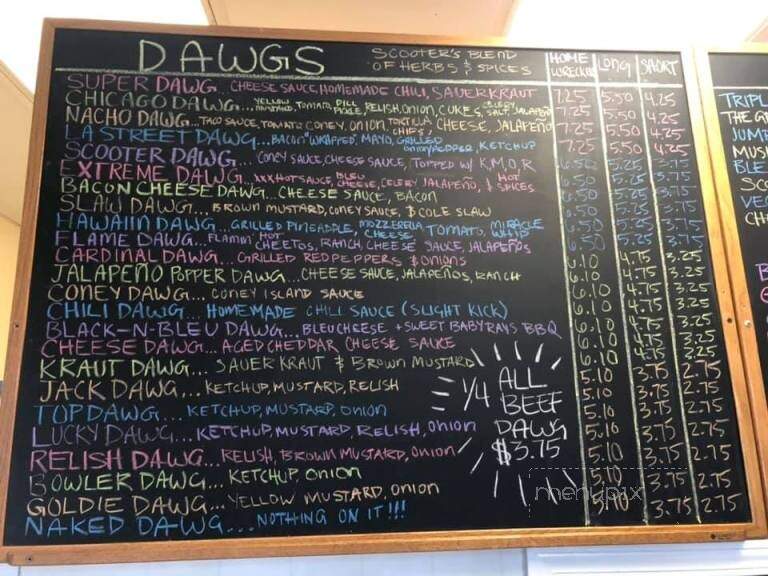 DAWGS
SCOOTER'S BLEND OF HERBS & SPICES
HOME WRECKER LONG SHORT
SUPER DAWG... CHEESE SAUCE, HOMEMADE CHILI, SAUERKRAUT 7.25 5.50 4.25
CHICAGO DAWG... YELLOW MUSTARD, TOMATO, DILL PICKLE, RELISH, ONION, CUKES, CELERY SALT, JALAPEÑO 7.25 5.50 4.25
NACHO DAWG... TACO SAUCE, TOMATO, CONEY, ONION, TORTILLA CHIPS, CHEESE, JALAPEÑO 7.25 5.50 4.25
LA STREET DAWG... BACON WRAPPED, MAYO, GRILLED ONION/PEPPER, KETCHUP 7.25 5.50 4.25
SCOOTER DAWG... CONEY SAUCE, CHEESE SAUCE, TOPPED W/ K, M, O, R 6.50 5.25 3.75
EXTREME DAWG... XXX HOT SAUCE, BLEU CHEESE, CELERY, JALAPEÑO, & HOT SPICES 6.50 5.25 3.75
BACON CHEESE DAWG... CHEESE SAUCE, BACON 6.50 5.25 3.75
SLAW DAWG... BROWN MUSTARD, CONEY SAUCE, & COLE SLAW 6.50 5.25 3.75
HAWAIIN DAWG... GRILLED PINEAPPLE, MOZZERELLA CHEESE, TOMATO, MIRACLE WHIP 6.50 5.25 3.75
FLAME DAWG... FLAMIN HOT CHEETOS, RANCH, CHEESE SAUCE, JALAPEÑOS 6.50 5.25 3.75
CARDINAL DAWG... GRILLED RED PEPPERS & ONIONS 6.10 4.75 3.25
JALAPEÑO POPPER DAWG... CHEESE SAUCE, JALAPEÑOS, RANCH 6.10 4.75 3.25
CONEY DAWG... CONEY ISLAND SAUCE 6.10 4.75 3.25
CHILI DAWG... HOMEMADE CHILI SAUCE (SLIGHT KICK) 6.10 4.75 3.25
BLACK-N-BLEU DAWG... BLEU CHEESE + SWEET BABY RAYS BBQ 6.10 4.75 3.25
CHEESE DAWG... AGED CHEDDAR CHEESE SAUCE 6.10 4.75 3.25
KRAUT DAWG... SAUER KRAUT & BROWN MUSTARD 5.10 3.75 2.75
JACK DAWG... KETCHUP, MUSTARD, RELISH 5.10 3.75 2.75
TOP DAWG... KETCHUP, MUSTARD, ONION 5.10 3.75 2.75
LUCKY DAWG... KETCHUP, MUSTARD, RELISH, ONION 5.10 3.75 2.75
RELISH DAWG... RELISH, BROWN MUSTARD, ONION 5.10 3.75 2.75
BOWLER DAWG... KETCHUP, ONION 5.10 3.75 2.75
GOLDIE DAWG... YELLOW MUSTARD, ONION 5.10 3.75 2.75
NAKED DAWG... NOTHING ON IT!!!
1/4 ALL BEEF DAWG $3.75
menupix
TRIPL
THE
JUMB
MUSH
BLE
SCO
VEG
CH